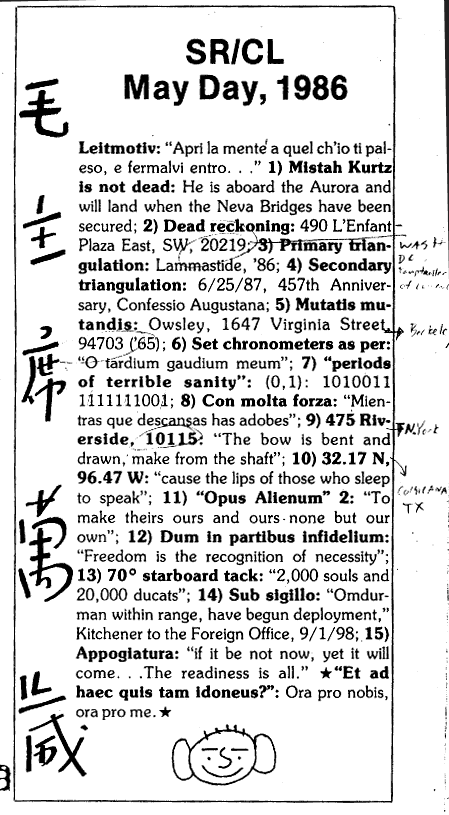 毛
主
席
萬
歲
SR/CL
May Day, 1986
Leitmotiv: “Apri la mente a quel ch'io ti pal-
eso, e fermalvi entro. . .” 1) Mistah Kurtz
is not dead: He is aboard the Aurora and
will land when the Neva Bridges have been
secured; 2) Dead reckoning: 490 L'Enfant
Plaza East, SW, 20219; 3) Primary trian-
gulation: Lammastide, '86; 4) Secondary
triangulation: 6/25/87, 457th Anniver-
sary, Confessio Augustana; 5) Mutatis mu-
tandis: Owsley, 1647 Virginia Street,
94703 ('65); 6) Set chronometers as per:
“O tardium gaudium meum”; 7) “periods
of terrible sanity”: (0,1): 1010011
1111111001; 8) Con molta forza: “Mien-
tras que descansas has adobes”; 9) 475 Riv-
erside, 10115: “The bow is bent and
drawn, make from the shaft”; 10) 32.17 N,
96.47 W: “cause the lips of those who sleep
to speak”; 11) “Opus Alienum” 2: “To
make theirs ours and ours none but our
own”; 12) Dum in partibus infidelium:
“Freedom is the recognition of necessity”;
13) 70° starboard tack: “2,000 souls and
20,000 ducats”; 14) Sub sigillo: “Omdur-
man within range, have begun deployment,”
Kitchener to the Foreign Office, 9/1/98; 15)
Appogiatura: “if it be not now, yet it will
come. . .The readiness is all.” ★“Et ad
haec quis tam idoneus?”: Ora pro nobis,
ora pro me.★
WASH
DC
N.York
CORSICANA
TX